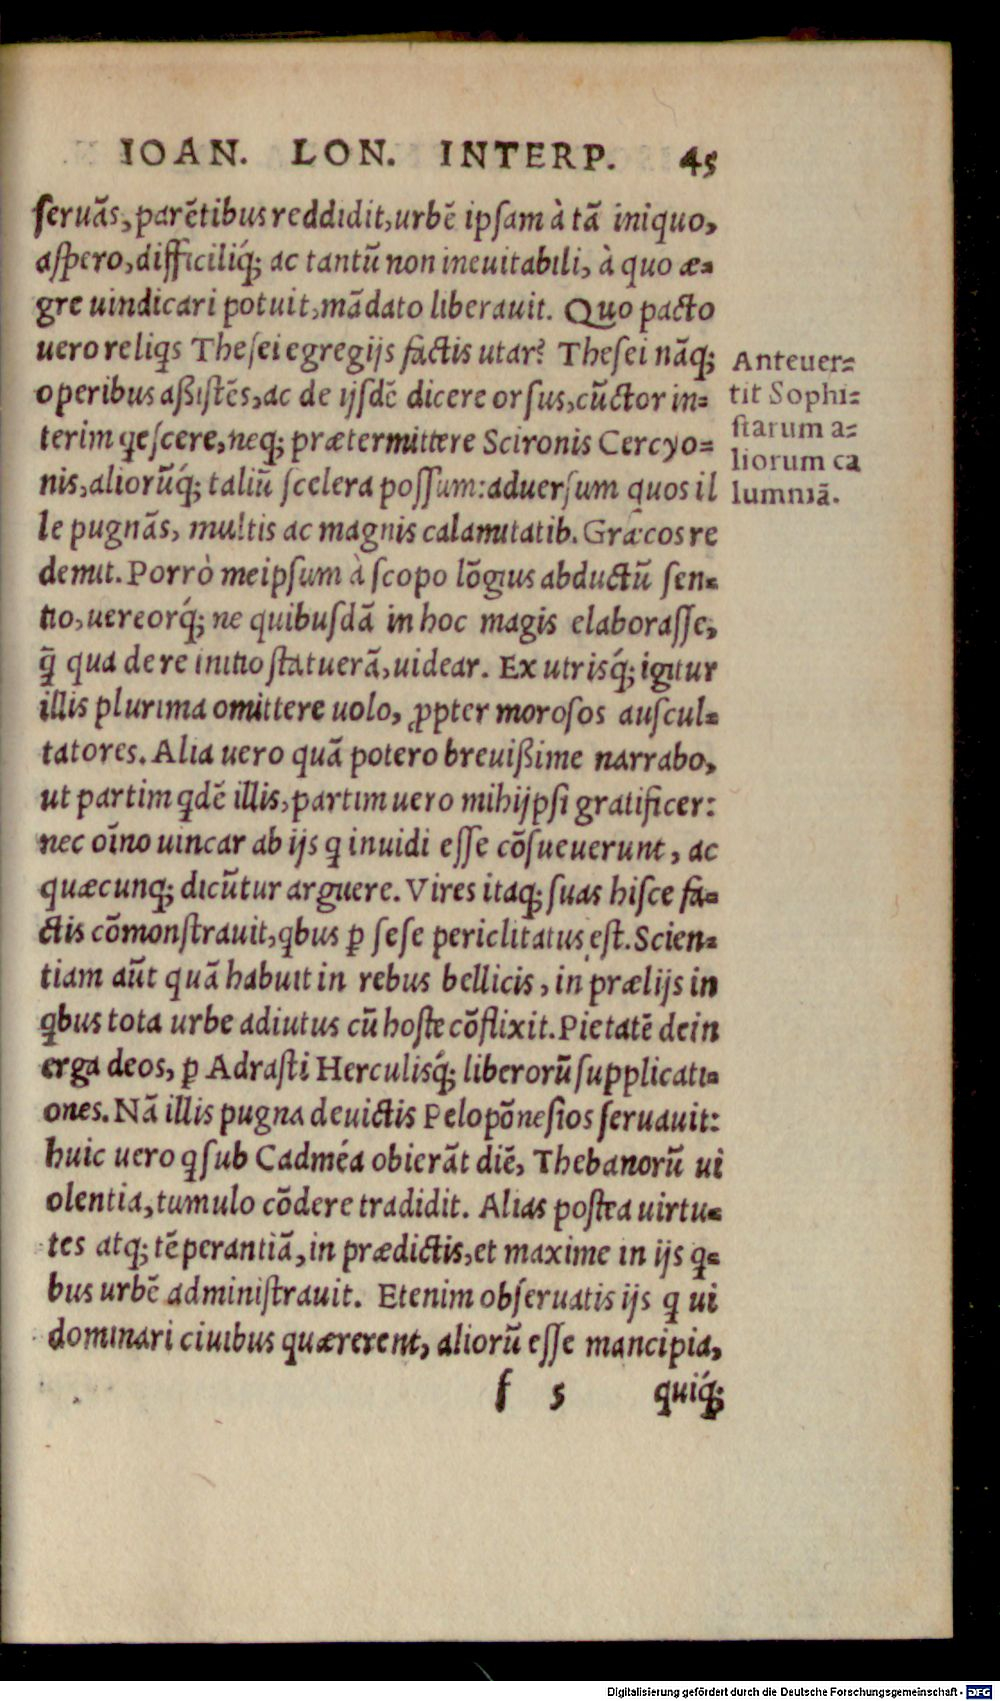 IOAN. LON. INTERP. 45
seruãs, parẽtibus reddidit, urbẽ ipsam à tã iniquo,
aspero, difficiliq́; ac tantũ non ineuitabili, à quo æ-
gre uindicari potuit, mãdato liberauit. Quo pacto
uero reliqs Thesei egregijs factis utar? Thesei nãq;
operibus aßistẽs, ac de ijsdẽ dicere orsus, cũctor in-
terim qescere, neq; prætermittere Scironis Cercyo-
nis, aliorũq́; taliũ scelera possum: aduersum quos il
le pugnãs, multis ac magnis calamitatib. Græcos re
demit. Porrò meipsum à scopo lõgius abductũ sen-
tio, uereorq́; ne quibusdã in hoc magis elaborasse,
q̃ qua de re initio statuerã, uidear. Ex utrisq́; igitur
illis plurima omittere uolo, ꝓpter morosos auscul-
tatores. Alia uero quã potero breuißime narrabo,
ut partim qdẽ illis, partim uero mihijpsi gratificer:
nec oĩno uincar ab ijs q inuidi esse cõsueuerunt, ac
quæcunq; dicũtur arguere. Vires itaq; suas hisce fa-
ctis cõmonstrauit, qbus ꝑ sese periclitatus est. Scien-
tiam aũt quã habuit in rebus bellicis, in prælijs in
qbus tota urbe adiutus cũ hoste cõflixit. Pietatẽ dein
erga deos, ꝑ Adrasti Herculisq́; liberorũ supplicati-
ones. Nã illis pugna deuictis Pelopõnesios seruauit:
huic uero q sub Cadméa obierãt diẽ, Thebanorũ ui
olentia, tumulo cõdere tradidit. Alias postea uirtu-
tes atq; tẽperantiã, in prædictis, et maxime in ijs q-
bus urbẽ administrauit. Etenim obseruatis ijs q ui
dominari ciuibus quærerent, aliorũ esse mancipia,
f 5 quiq́;
Anteuer-
tit Sophi-
starum a-
liorum ca
lumniã.
Digitalisierung gefördert durch die Deutsche Forschungsgemeinschaft - DFG